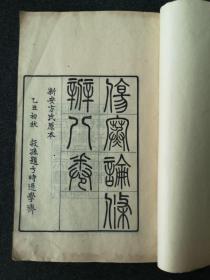 傷寒論條
辨八卷
新安方氏原本
乙丑初秋 孫題于時還學齋